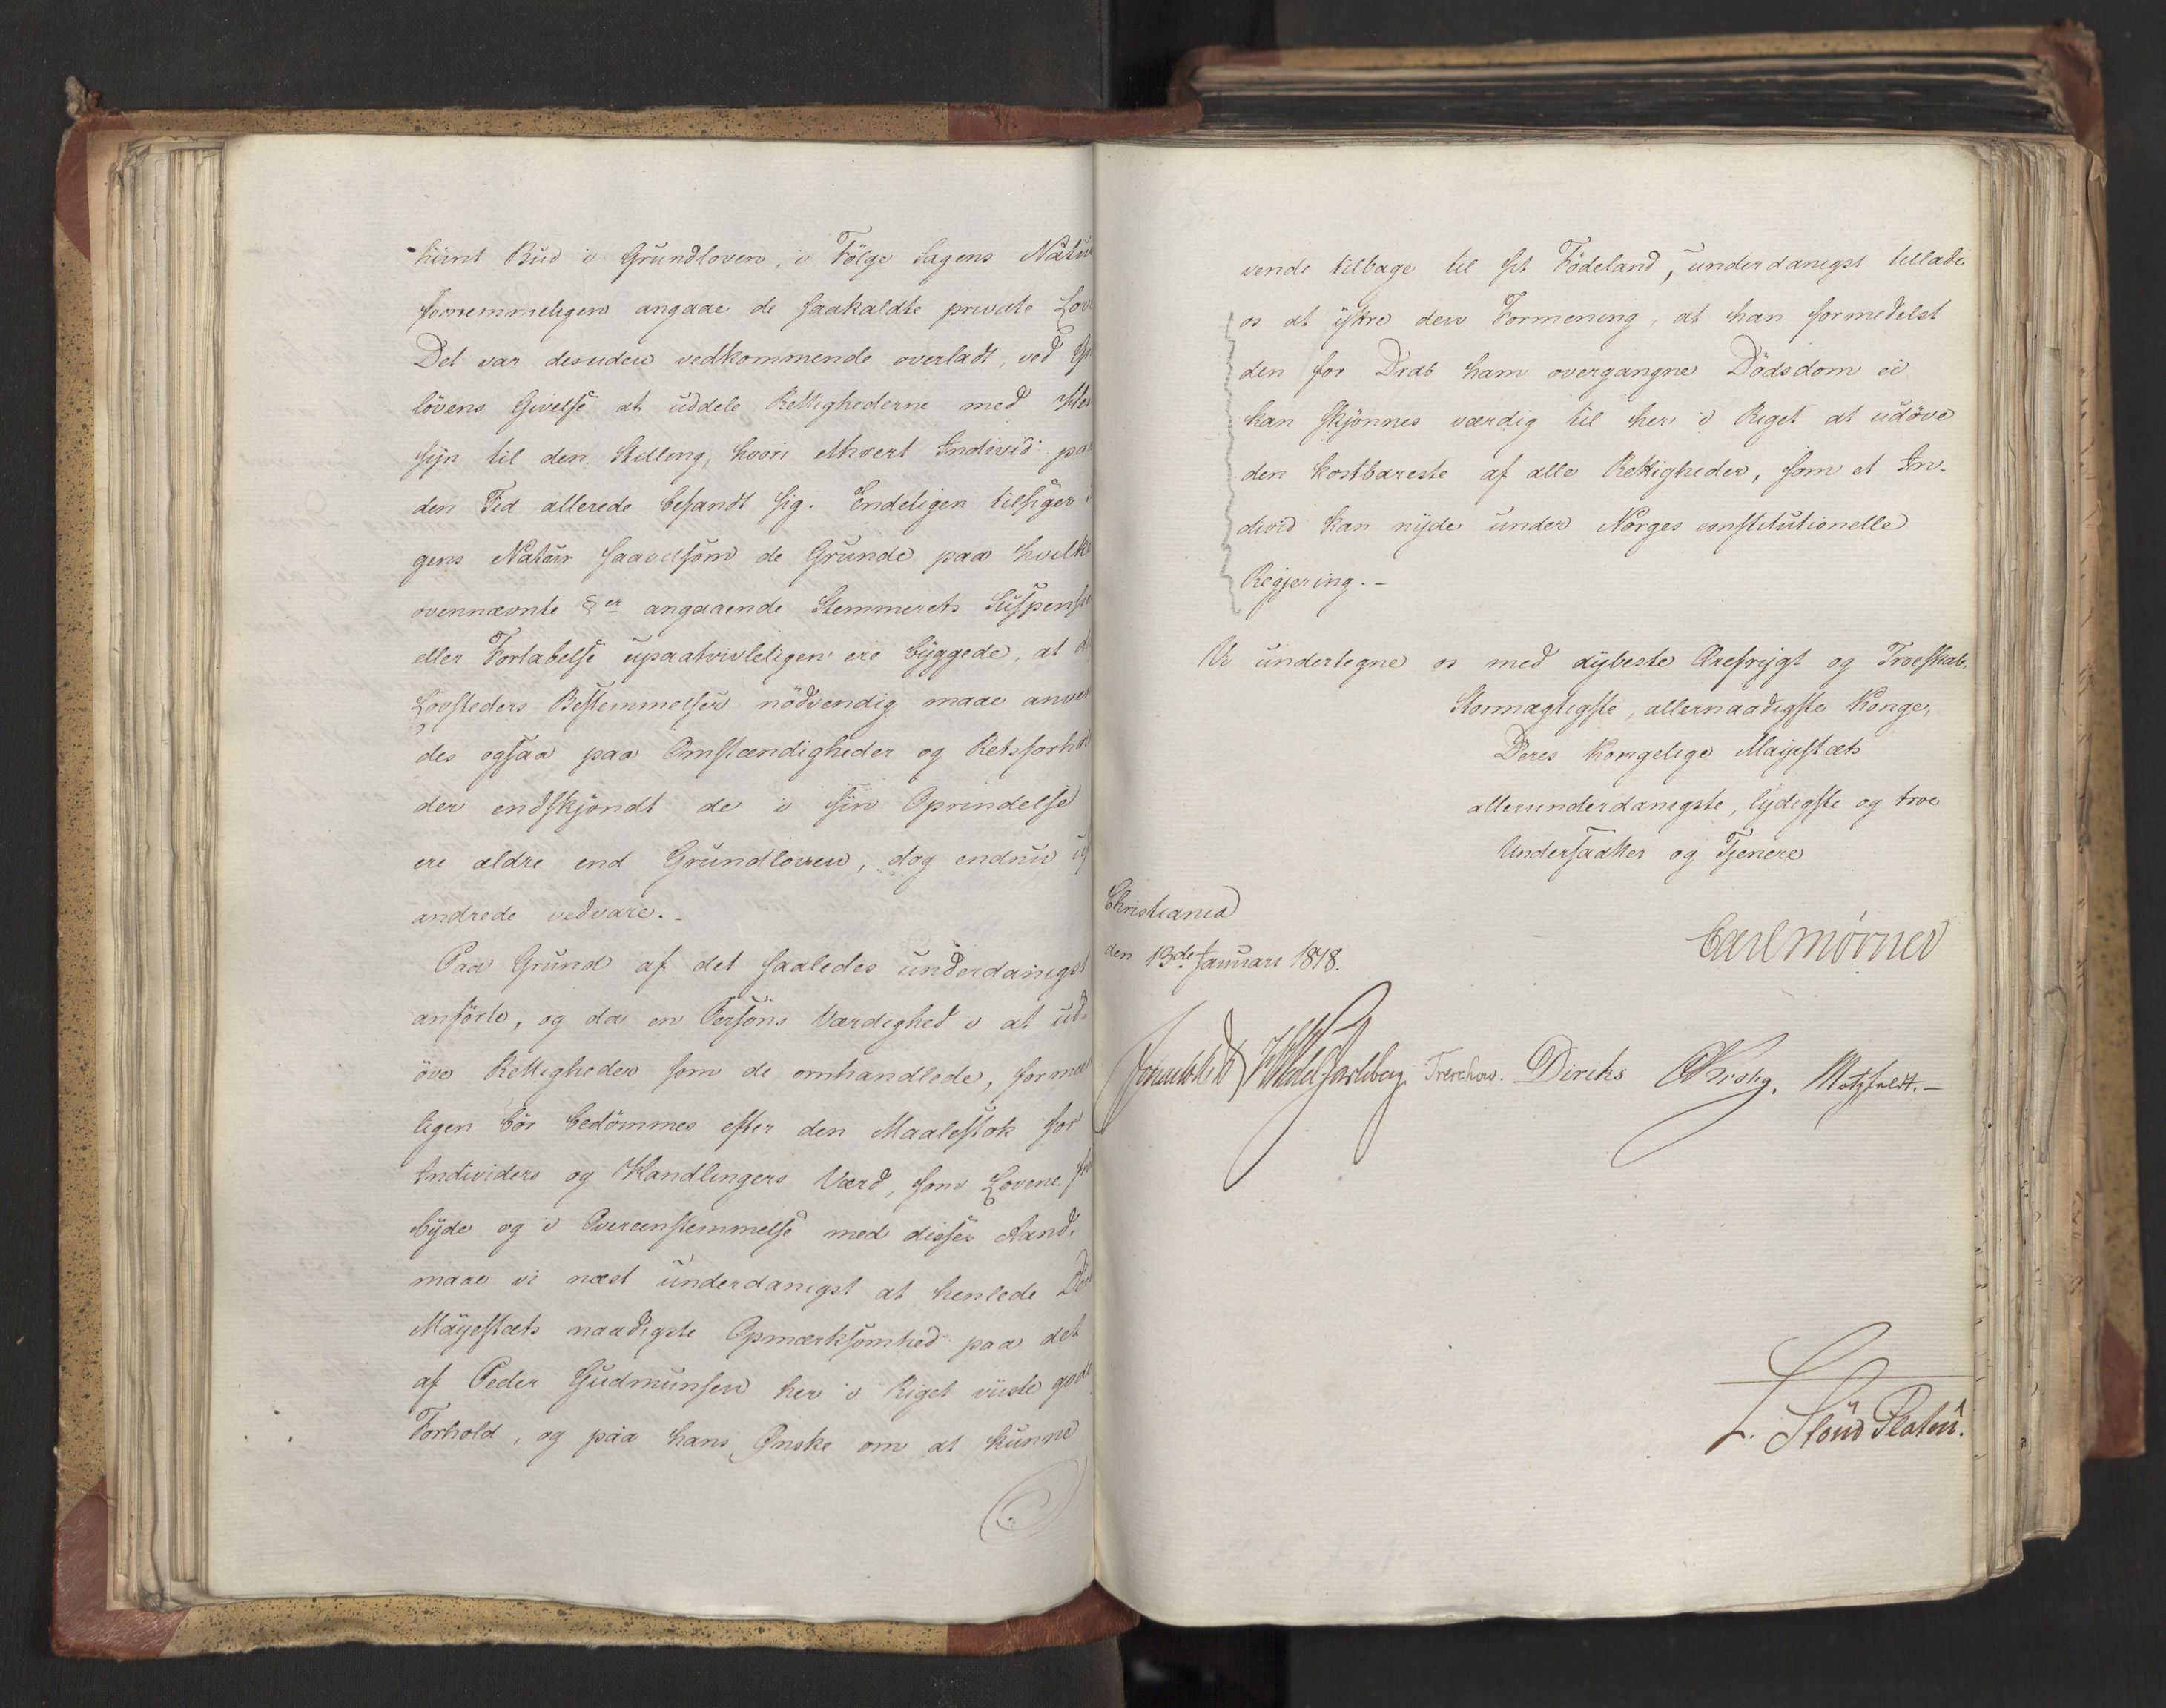 hiint Bud i Grundloven, i Følge Sagens Natur
fornemmeligen angaae de saakaldte private Lov
Det var desuden vedkommende overladt, ved
lovens Givelse at uddele Rettighederne med
syn til den Stilling, hvori ethvert Individ paa
den Tid allerede befandt sig. Endeligen tilsiger
gens Natur saavelsom de Grunde paa hvilke
ovennævnte §er angaaende Stemmerets Suspension
eller Fortabelse upaatvivleligen ere byggede, at
Lovsteders Bestemmelser nødvendig maae anven
des ogsaa paa Omstændigheder og Retsforhol
der endskjøndt de i sin Oprindelse
ere ældre end Grundloven, dog endnu
andrede vedvare.-
Paa Grund af det saaledes underdanigst
anførte, og da en Persons Værdighed i at ud-
øve Rettigheder som de omhandlede, formee
ligen bør bedømmes efter den Maalestok for
Individers og Handlingers Værd, som Lovene
byde og i Overeenstemmelse med disses Aand.
maae vi næst underdanigst at henlede
Mayestæts naadigste Opmærksomhed paa det
af Peder Gudmunsen her i Riget viiste gode
Forhold, og paa hans Ønske om at kunne
vende tilbage til sit Fødeland, underdanigst tillade
os at yttre den Formening, at han formedelst
den for Drab ham overgangne Dødsdom ei
kan skjønnes værdig til her i Riget at udøve
den kostbareste af alle Rettigheder, som et In-
divid kan nyde under Norges constitutionelle
Regjering.-
Vi undertegne os med dybeste Ærefrygt og Troeskab,
Stormægtigste, allernaadigste Konge,
Deres Kongelige Mayestæts
allerunderdanigste, lydigste og troe
Undersaatter og Tjenere
Christiania
den 13de Januari 1818.
Carl Mörner
Sommerhielm Wedel Jarlsberg. Treschow. Diriks CKrohg. Motzfeldt.-
L. Stoud Platou.